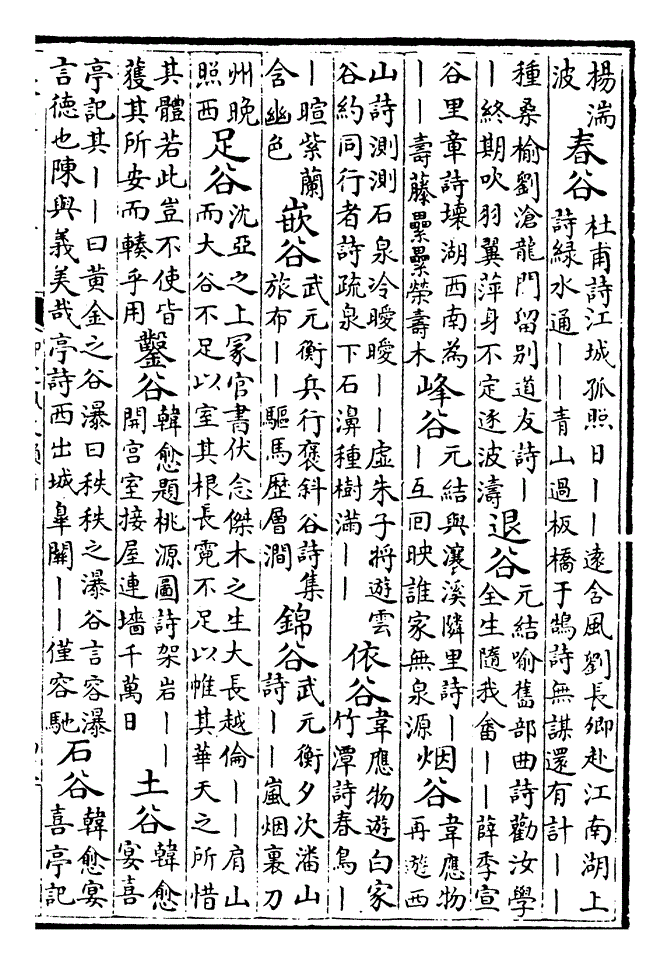 楊湍
波
春谷
杜甫詩江城孤照日——遠含風劉長卿赴江南湖上
詩緑水通——青山過板橋于鵠詩無謀還有計——
種桑榆劉滄龍門留别道友詩—
—終期吹羽翼萍身不定逐波濤
退谷
元結喻舊部曲詩勸汝學
全生隨我畬——薛季宣
谷里章詩壞湖西南為
——壽藤纍纍榮壽木
峰谷
元結與瀼溪隣里詩—
—互回映誰家無泉源
烟谷
韋應物
再遊西
山詩測測石泉冷曖曖——虛朱子將遊雲
谷約同行者詩疏泉下石濞種樹滿——
依谷
韋應物遊白家
竹潭詩春鳥—
—暄紫蘭
含幽色
嵌谷
武元衡兵行褒斜谷詩集
旅布——驅馬歴層澗
錦谷
武元衡夕次潘山
詩——嵐烟裏刀
州晚
照西
足谷
沈亞之上冡官書伏念傑木之生大長越倫——肩山
而大谷不足以室其根長霓不足以帷其華天之所惜
其體若此豈不使皆
獲其所安而轃乎用
鑿谷
韓愈題桃源圖詩架岩——
開宫室接屋連墻千萬日
土谷
韓愈
宴喜
亭記其——曰黄金之谷瀑曰秩秩之瀑谷言容瀑
言德也陳與義美哉亭詩西出城臯關——僅容馳
石谷
韓愈宴
喜亭記